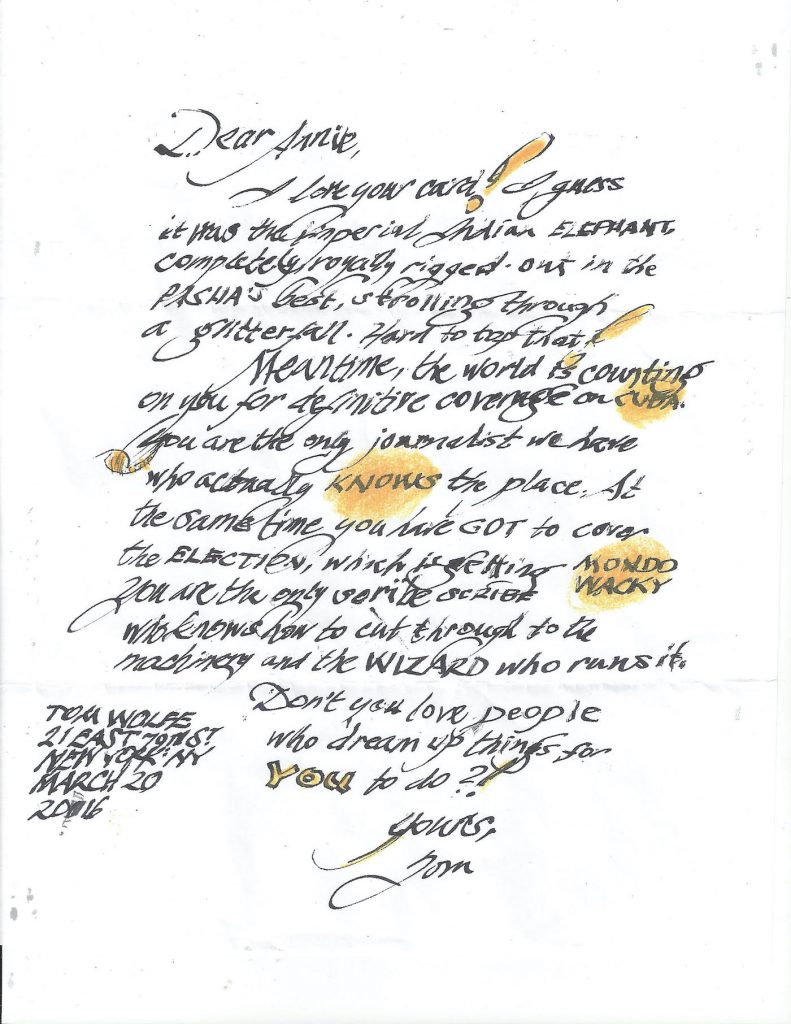 Dear Annie,
I love your card! I guess
it was the imperial Indian ELEPHANT,
completely, royally rigged-out in the
PASHA'S best, strolling through
a glitterfall. Hard to top that!
Meantime, the world is counting
on you for definitive coverage on CUBA.
You are the only journalist we have
who actually KNOWS the place. At
the same time you have GOT to cover
the ELECTION, which is getting MONDO
WACKY
You are the only
who knows how to cut through to the
machinery and the WIZARD who runs it.
Don't you love people
who dream up things for
YOU to do?!
Yours,
Tom
TOM WOLFE
21 EAST 79TH ST
NEW YORK NY
MARCH 20
2016